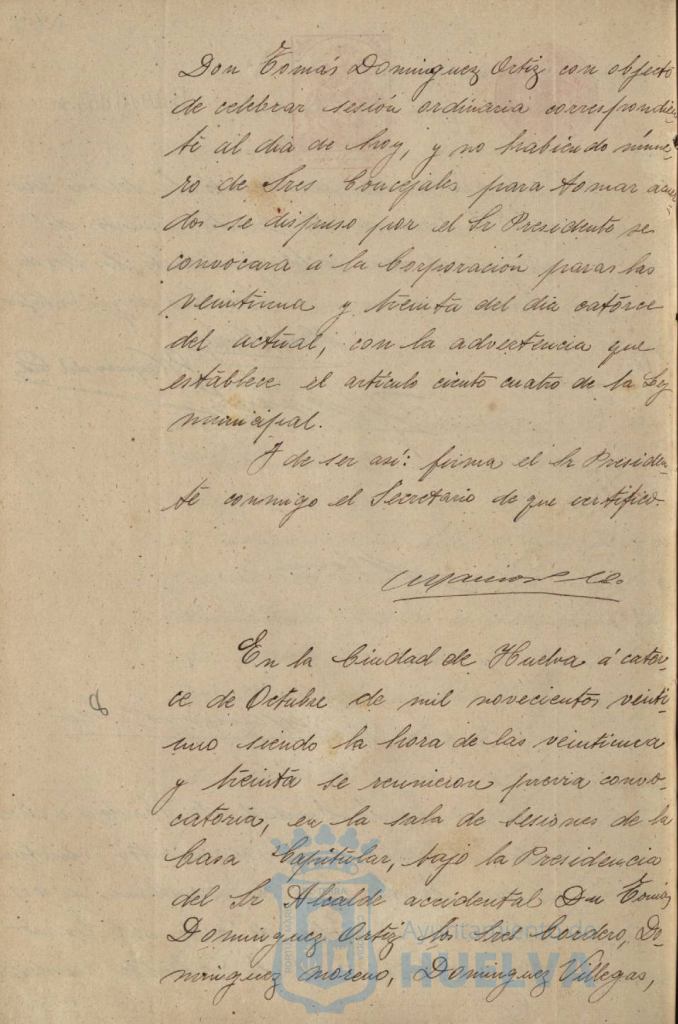 Don Tomás Dominguez Ortiz con objeto
de celebrar sesión ordinaria correspondien
te al dia de hoy, y no habiendo núme-
ro de Sres Concejales para tomar acuer
dos se dispuso por el Sr Presidente se
convocara á la Corporación para las
veintiuna y treinta del dia catorce
del actual, con la advertencia que
establece el artículo ciento cuatro de la Ley
municipal.
Y de ser así: firma el Sr Presiden-
te conmigo el Secretario de que certifico.
En la Ciudad de Huelva á cator-
ce de Octubre de mil novecientos veinti
uno siendo la hora de las veintiuna
y treinta se reunieron previa convo-
catoria, en la sala de sesiones de la
Casa Capitular, bajo la Presidencia
del Sr Alcalde accidental Don Tomás
Dominguez Ortiz los Sres Cordero, Do-
minguez Moreno, Dominguez Villegas,
Ayuntamiento de
HUELVA